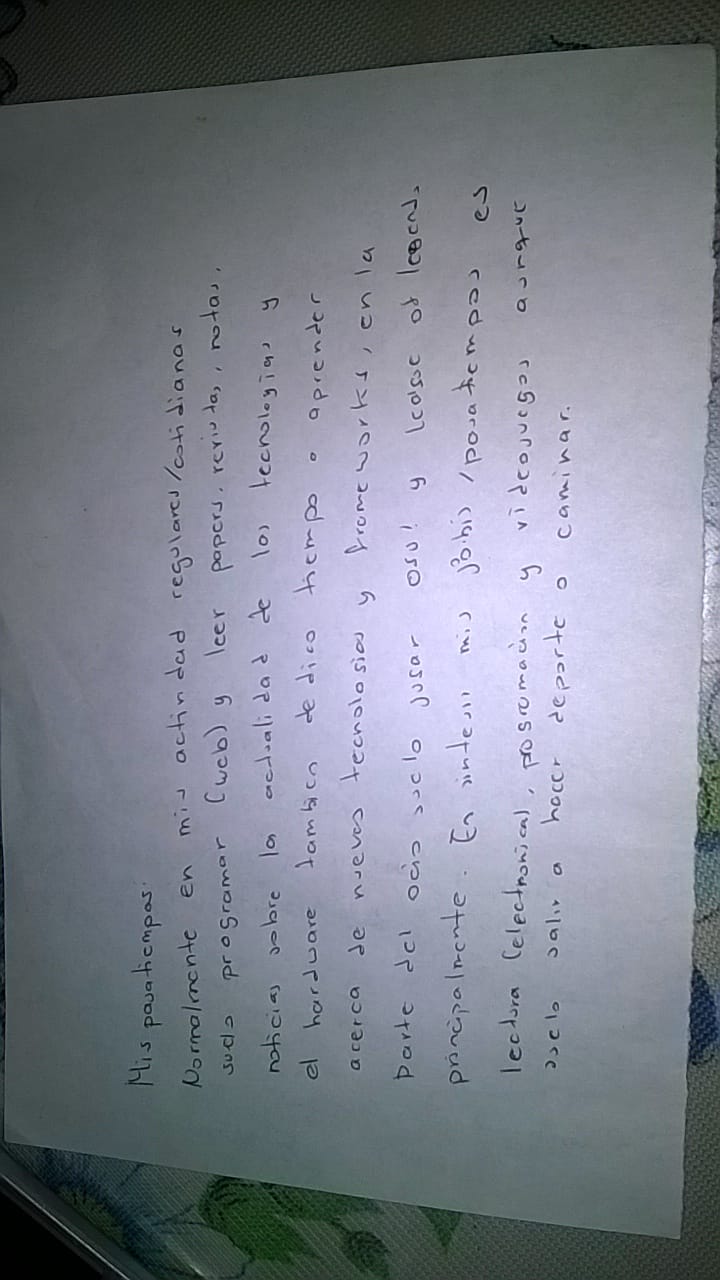 Mis pasatiempos:
Normalmente en mis actividad regulares/cotidianas
suelo programar (web) y leer papers, revistas, notas,
noticias sobre la actualidad de las tecnologias y
el hardware tambien dedico tiempo a aprender
acerca de nuevas tecnologias y frameworks, en la
parte del ocio suelo jugar osu! y league of legends
principalmente. En sintesis mis jobis/pasatiempos es
lectura (electronica), programacion y videojuegos aunque
suelo salir a hacer deporte o caminar.